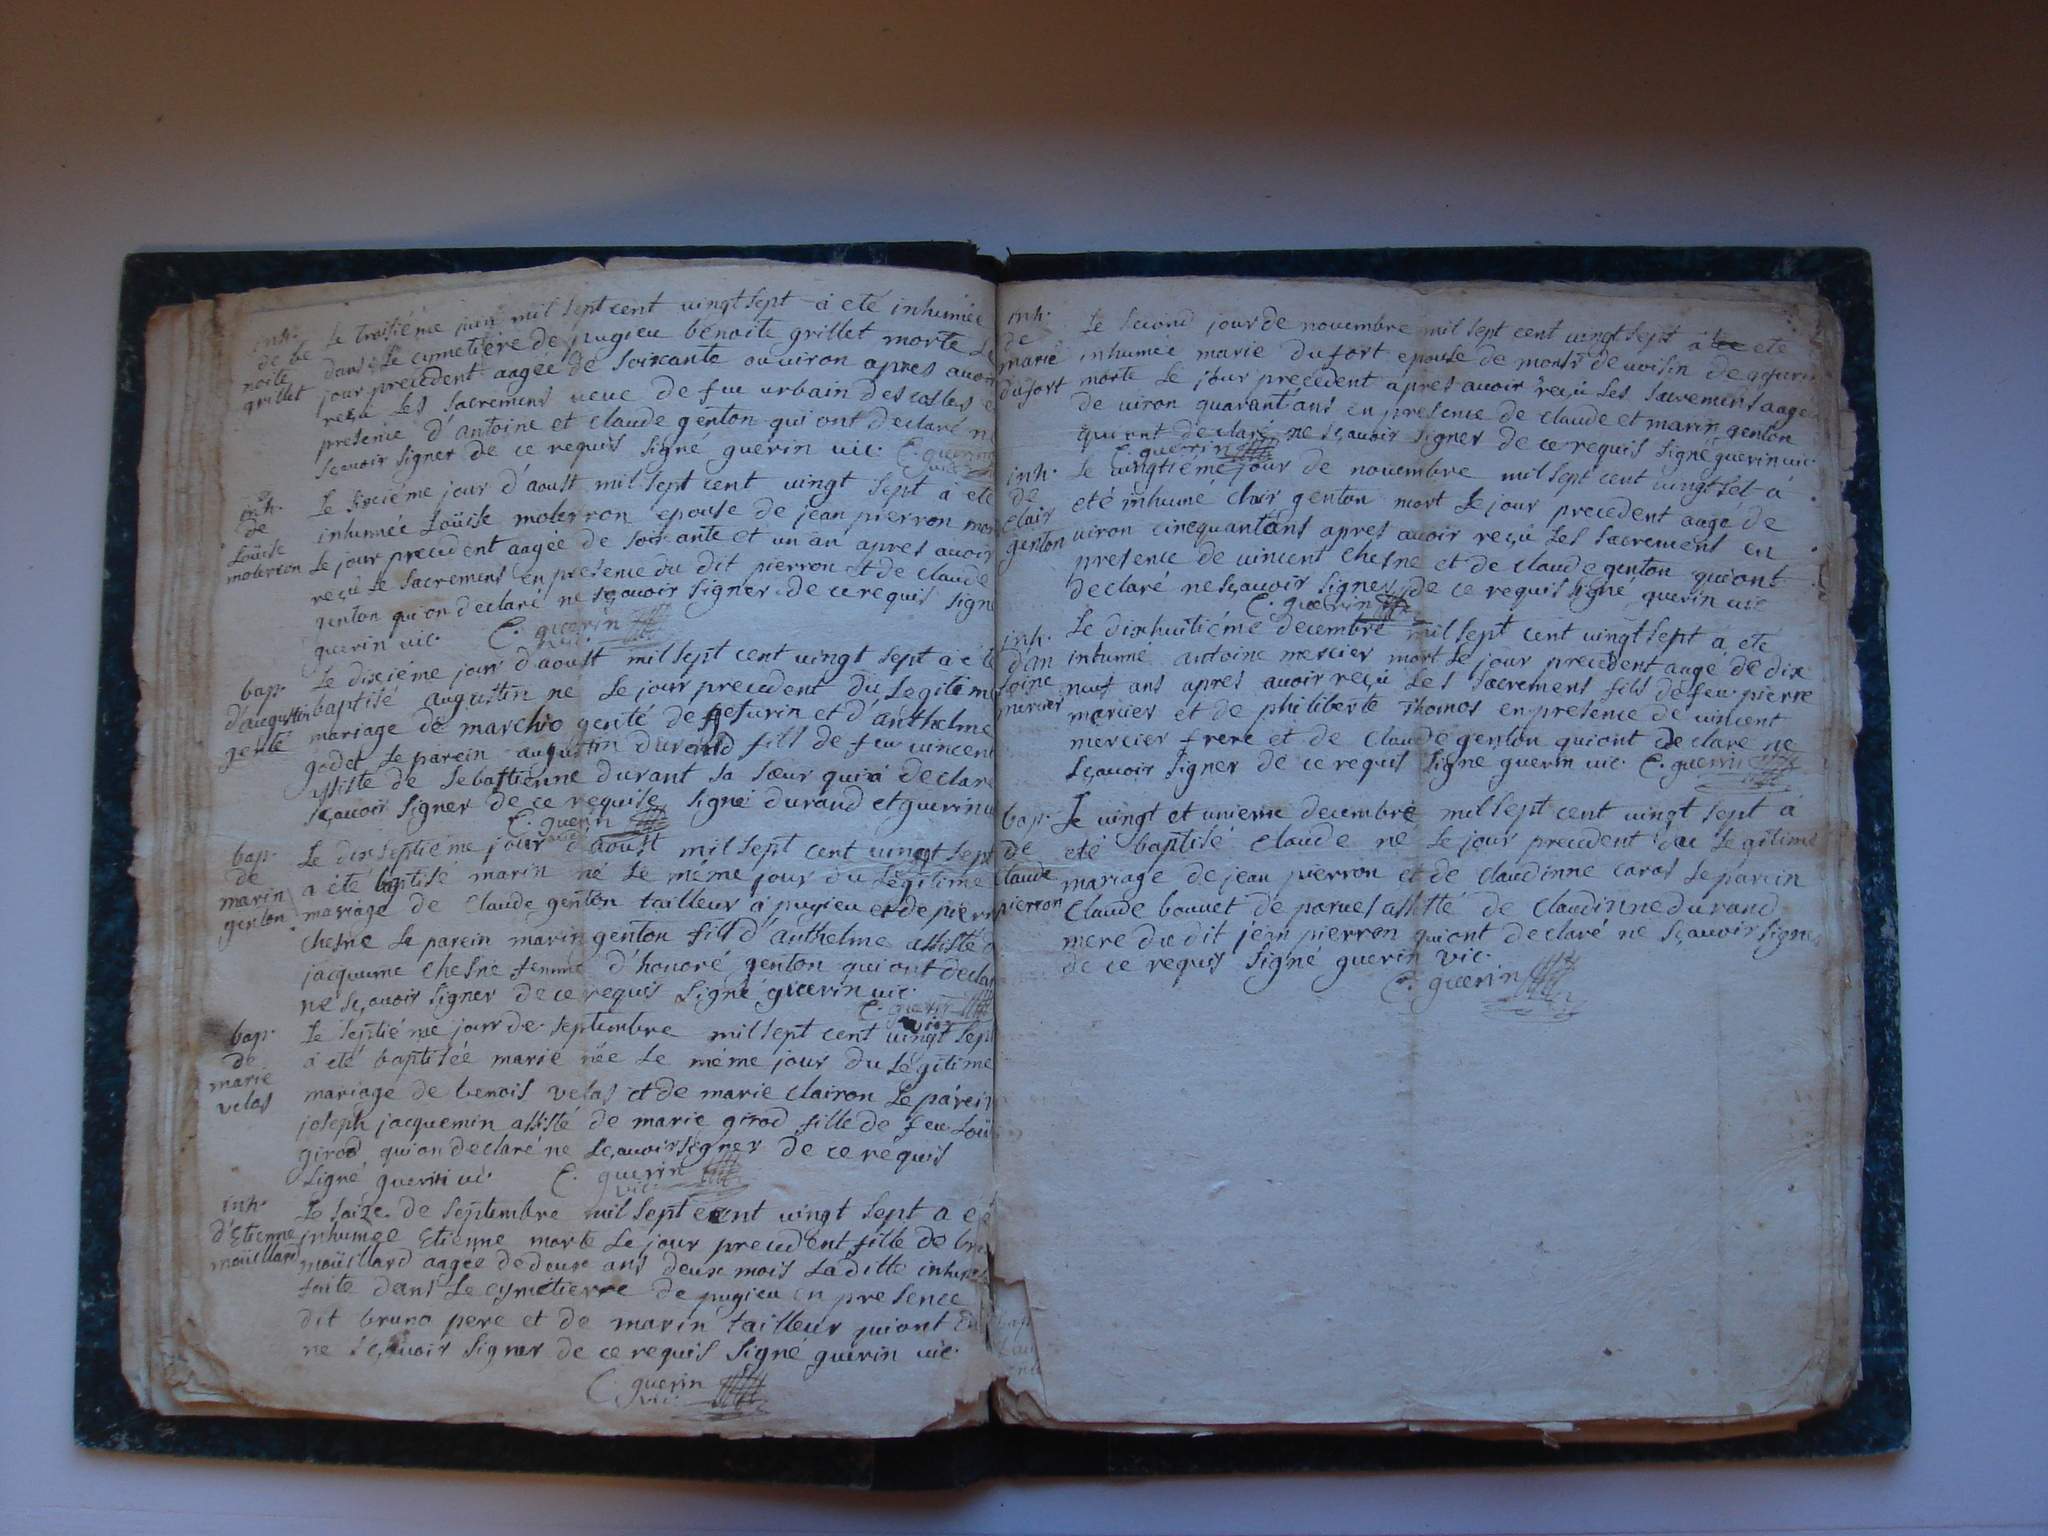 inh.
de be
noite
grillet
Le troisiéme juin mil sept cent vingt sept à eté inhumée
dans Le cymetiére de pugieu benoite grillet morte Le
jour precedent aagée de soixante ou uiron apres auoir
reçu Les sacremens ueue de feu urbain des costes
presence d'antoine et claude genton qui ont declaré ne
sçauoir signer de ce requis signé guerin uic. C. guerin
vic
inh.
de
Loüise
molerron
Le sixiéme jour d'aoust mil sept cent vingt sept à eté
inhumée Loüise molerron epouse de jean pierron mor
Le jour precedent aagée de soixante et un an apres auoir
reçû Le sacremens en presence du dit pierron et de claude
genton qui on declaré ne sçauoir signer de ce requis signé
guerin uic. C. guerin
vic.
bap.
d'augustin
genté
Le dixiéme jour d'aoust mil sept cent uingt sept à été
baptisé augustin né Le jour precedent du Legitime
mariage de marchio genté de gefurin et d'anthelme
godet Le parein augustin durand fils de feu uincent
assiste de sebastienne durant sa sœur qui à declaré
sçauoir signer de ce requise signé durand et guerin u
C. guerin
bap.
de
marin
genton
Le dix septiéme jour d'aoust mil sept cent uingt sept
a été baptisé marin né Le même jour du Légitime
mariage de Claude genton tailleur à pugieu et de pierr
chesne Le parein marin genton fils d'anthelme assisté d
jacqueme chesne femme d'honoré genton qui ont declar
ne sçauoir signer de ce requis signé guerin uic.
C. guerin
vic
bap.
de
marie
velas
Le septiéme jour de septembre mil sept cent vingt sept
à été baptisée marie née Le même jour du Légitime
mariage de benois velas et de marie clairon Le párein
joseph jacquemin assisté de marie girod fille de feu Loü
girod qui on declaré ne sçauoir signer de ce requis
signé guerin uic. C. guerin
vic.
inh.
d'Etienne
moüillard
Le saize de septembre mil sept cent vingt sept a é
inhumée Etienne morte Le jour precedent fille de bru
moüillard aagée de deux ans deux mois La ditte inhum
faite dans Le cymétierre de pugieu en presence
dit bruno pere et de marin tailleur qui ont
ne sçauoir signer de ce requis signé guerin uic.
C. guerin
vic.
inh.
de
marie
dufort
Le second jour de novembre mil sept cent vingt sept à eté
inhumée marie dufort epouse de monsr de uoisin de gefurin
morte Le jour precedent apres auoir reçû Les sacremens aagée
de uiron quarant'ans en presence de claude et marin genton
qui ont declaré ne sçauoir signer de ce requis signé guerin uic.
C. guerin
inh.
de
Clair
genton
Le uingtiéme jour de novembre mil sept cent uingt set à
eté inhumé clair genton mort Le jour precedent aagé de
uiron cinquantans apres auoir reçû Les sacremens en
presence de uincent chesne et de claude genton qui ont
declaré ne sçauoir signer de ce requis signé guerin uic
C. guerin
inh.
d'an
toine
mercier
Le dixhuitiéme decembre mil sept cent uingt sept a eté
inhumé antoine mercier mort Le jour precedent aagé de dix
neuf ans apres auoir reçu Les sacremens fils de feu pierre
mercier et de philiberte Thomas en presence de uincent
mercier frere et de Claude genton qui ont declaré ne
sçauoir signer de ce requis signé guerin uic. C. guerrin
bap.
de
Claude
pierron
Le uingt et unieme decembre mil sept cent uingt sept à
eté baptisé Claude né Le jour precedent du Legitime
mariage de jean pierron et de claudinne caras Le parein
Claude bouuet de parues assisté de Claudinne durand
mere du dit jean pierron qui ont declaré ne sçauoir signer
de ce requis signé guerin vic.
C. guerin